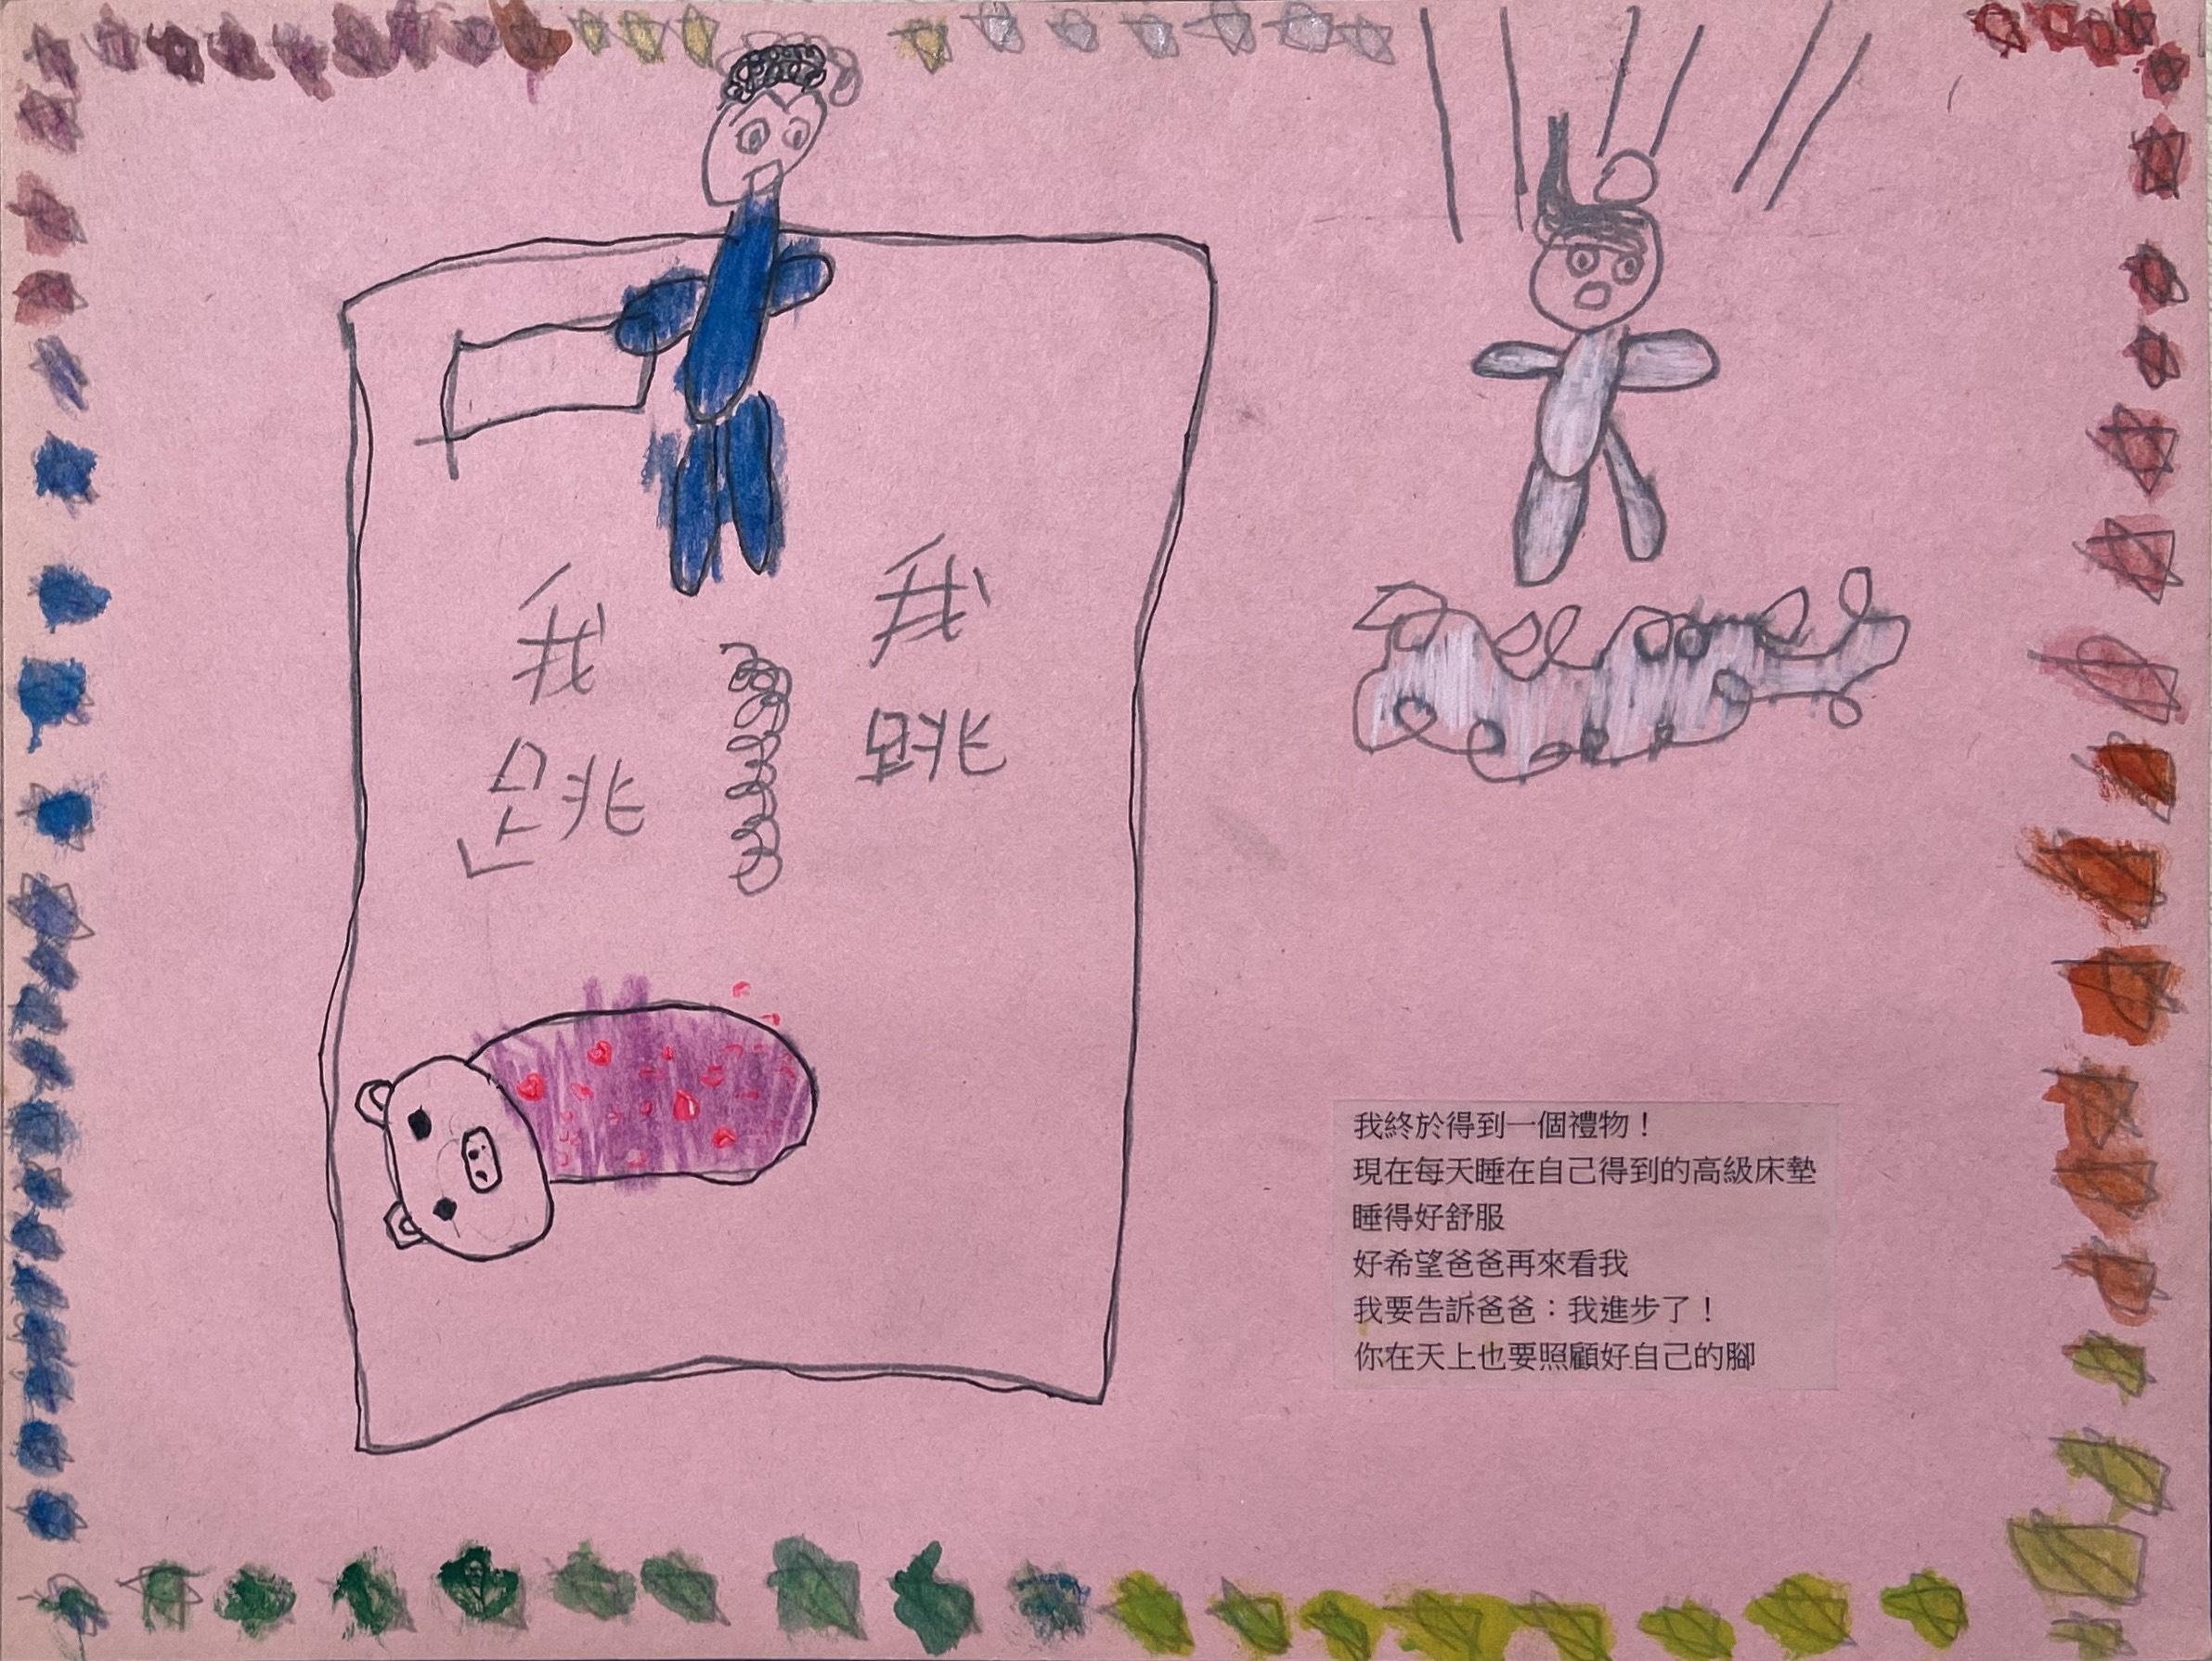 我跳
我跳
我終於得到一個禮物！
現在每天睡在自己得到的高級床墊
睡得好舒服
好希望爸爸再來看我
我要告訴爸爸：我進步了！
你在天上也要照顧好自己的腳